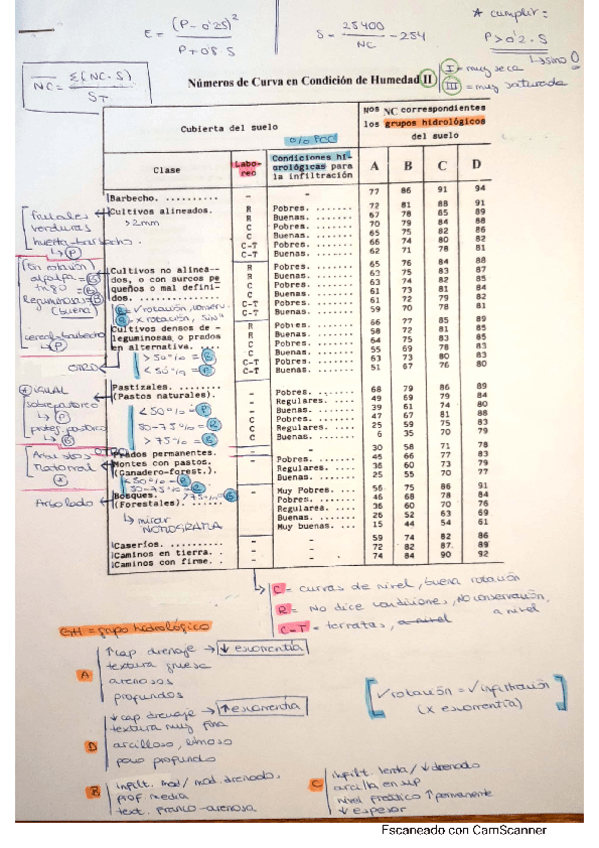 E = (P - 0'2S)² / P + 0'8·S
S = 25400 / NC - 254
* cumplir:
P > 0'2·S
↳ sino 0
NC = Σ(NC·S) / ST
Números de Curva en Condición de Humedad II
I = muy seca
III = muy saturada
Cubierta del suelo
Nos NC correspondientes
los grupos hidrológicos
del suelo
% FCC
Clase
Labo-
reo
Condiciones hi-
drológicas para
la infiltración
A B C D
Barbecho. .......... - - 77 86 91 94
Cultivos alineados. R Pobres. ....... 72 81 88 91
> 2mm R Buenas. ....... 67 78 85 89
C Pobres. ....... 70 79 84 88
C Buenas. ....... 65 75 82 86
C-T Pobres. ....... 66 74 80 82
C-T Buenas. ....... 62 71 78 81
frutales
verduras
huerta-barbecho
↳ P
Cultivos no alinea-- R Pobres. ....... 65 76 84 88
dos, o con surcos pe R Buenas. ....... 63 75 83 87
queños o mal defini- C Pobres. ....... 63 74 82 85
dos. ............... C Buenas. ....... 61 73 81 84
C-T Pobres. ....... 61 72 79 82
C-T Buenas. ....... 59 70 78 81
(Sin rotación)
alfalfa = B
trigo = B
leguminosas = B
(buena)
cereal-barbecho
↳ P
OTRO
Cultivos densos de - R Pobres. ....... 66 77 85 89
leguminosas o prados R Buenas. ....... 58 72 81 85
en alternativa. ... C Pobres. ....... 64 75 83 85
> 50% = B C Buenas. ....... 55 69 78 83
< 50% = P C-T Pobres. ....... 63 73 80 83
C-T Buenas. ....... 51 67 76 80
* IGUAL
sobrepastoreo
↳ P
↳ B
Pastizales. ........ - Pobres. ....... 68 79 86 89
(Pastos naturales). - Regulares. .... 49 69 79 84
< 50% = P - Buenas. ....... 39 61 74 80
50-75% = R C Pobres. ....... 47 67 81 88
> 75% = B C Regulares. .... 25 59 75 83
C Buenas. ....... 6 35 70 79
OTRO
Prados permanentes. - - 30 58 71 78
Montes con pastos. - Pobres. ....... 45 66 77 83
(Ganadero-forest.). Regulares. .... 36 60 73 79
Buenas. ....... 25 55 70 77
< 50% = P
50-75% = R
> 75% = B
Arbustos
Matorral
Arbolado
Bosques. - Muy Pobres. ... 56 75 86 91
(Forestales). Pobres. ....... 46 68 78 84
↳ mirar Regulares. .... 36 60 70 76
NOMOGRAMA Buenas. ....... 26 52 63 69
Muy buenas. ... 15 44 54 61
Caseríos. .......... - - 59 74 82 86
Caminos en tierra. . - - 72 82 87 89
Caminos con firme. . - - 74 84 90 92
C = curvas de nivel, buena rotación
R = No dice condiciones, NO conservación,
a nivel
C-T = terrazas, a nivel
GH = grupo hidrológico
A
↑ cap. drenaje → ↓ escorrentía
textura gruesa
arenosos
profundos
D
↓ cap. drenaje → ↑ escorrentía
textura muy fina
arcilloso, limoso
poco profundo
[✓ rotación = ✓ infiltración
(x escorrentía)]
B
infilt. mod / mod. drenados,
prof media
text. franco-arenosa.
C
infilt. lenta / ↓ drenado
arcilla en sup
nivel freático ↑ permanente
↓ espesor
Escaneado con CamScanner